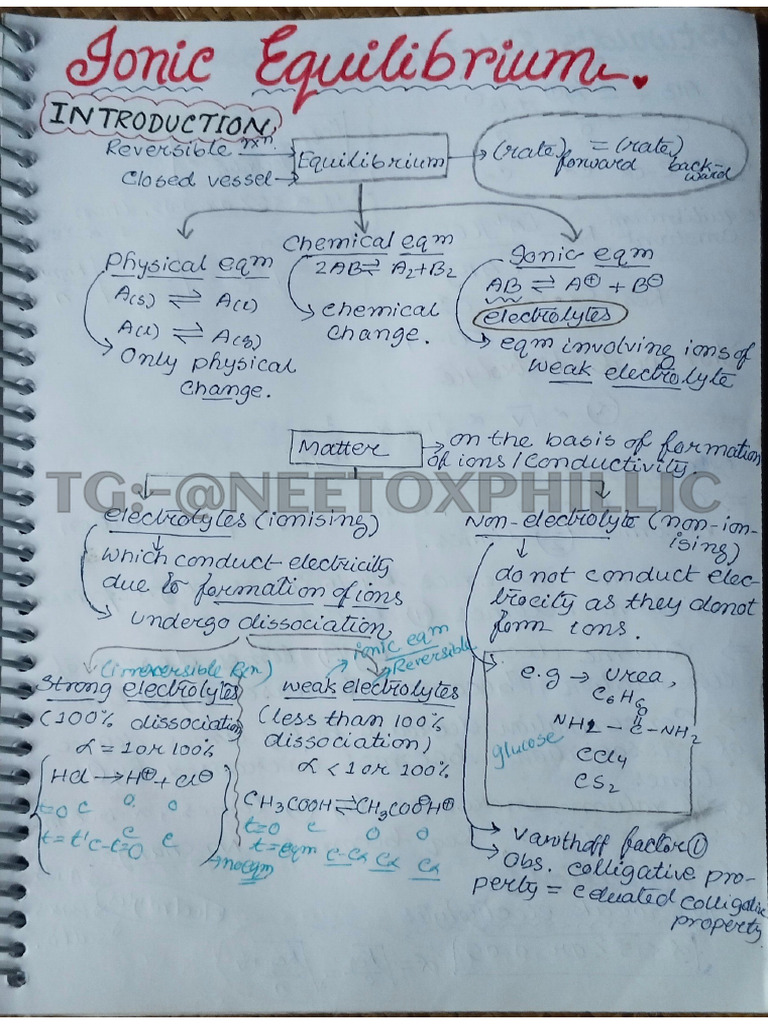 Ionic Equilibrium.
INTRODUCTION
Reversible rxn
Closed vessel
Equilibrium
(rate) forward = (rate) backward
Physical eqm
A(s) ⇌ A(l)
A(l) ⇌ A(g)
Only physical
change.
Chemical eqm
2AB ⇌ A2+B2
chemical
change.
Ionic eqm
AB ⇌ A⊕ + B⊖
electrolytes
eqm involving ions of
weak electrolyte
Matter
on the basis of formation
of ions/conductivity.
TG:-@NEETOXPHILLIC
electrolytes (ionising)
which conduct electricity
due to formation of ions
undergo dissociation
Non-electrolyte (non-ion-
ising)
do not conduct elec-
trocity as they donot
form ions.
(irreversible Rxn)
Strong electrolytes
(100% dissociation
α = 1 or 100%
HCl → H⊕ + Cl⊖
t=0 c 0 0
t=t' c-c=0 c c
no eqm
ionic eqm
Reversible
weak electrolytes
(less than 100%
dissociation)
α < 1 or 100%
CH3COOH ⇌ CH3COO⊖H⊕
t=0 c 0 0
t=eqm c-cα cα cα
e.g → Urea,
C6H6
O
NH2 - C - NH2
glucose
CCl4
CS2
Vanthoff factor ①
Obs. colligative pro-
perty = colligative
property.